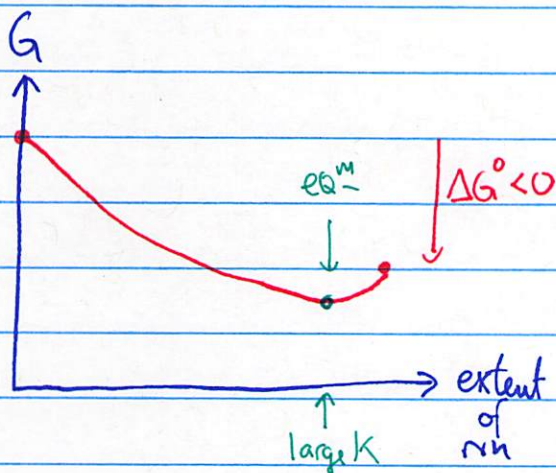 G
eqᵐ
ΔG⁰<0
extent
of
rxn
large K